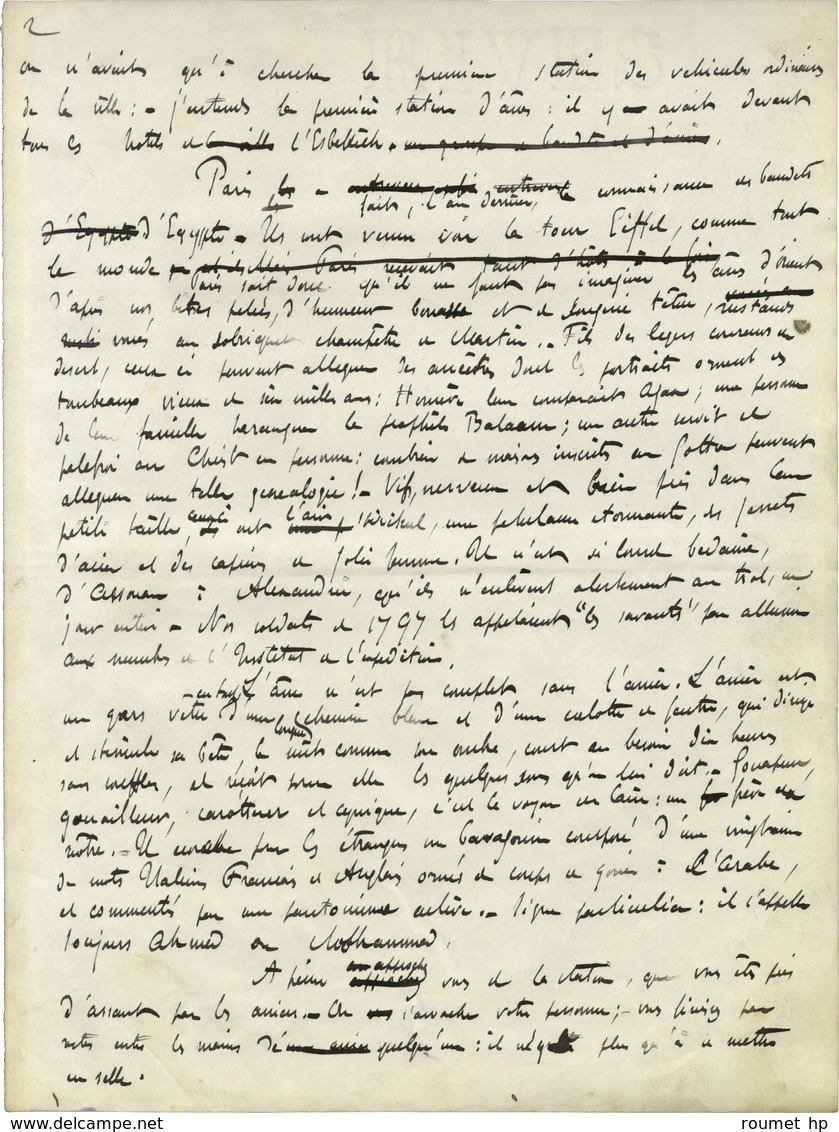 2
on n'avait qu'à chercher la première station des vehicules ordinaires
de la ville : – j'entends la première station d'ânes : il y avait devant
tous les hotels et l'Esbekieh.
Paris a fait, l'an dernier, la connaissance des baudets
d'Egypte d'Egypte – Ils ont venus voir la tour Eiffel, comme tout
le monde
Paris sait donc qu'il ne faut pas imaginer les ânes d'Orient
d'après nos bêtes pelées, d'humeur bonasse et de longine têtue, rustauds
voués au sobriquet champêtre de Martin. – Fils des legers coureurs du
desert, ceux ci peuvent alleguer des ancêtres dont les portraits ornent des
tombeaux vieux de six mille ans : Homère leur comparait Ajax ; une personne
de leur famille harangua le prophète Balaam ; un autre servit de
palefroi au Christ en personne : combien de maisons inscrites au Gotha peuvent
alleguer une telle genealogie ! – Vifs, nerveux et bien pris dans leur
petite taille, ceux-ci ont l'air viril, une petulance etonnante, des jarrets
d'acier et des caprices de jolie femme. Il n'est si lourd bedaine,
d'Assouan à Alexandrie, qu'ils n'enlèvent alertement au trot, un
jour entier – Nos soldats de 1797 les appelaient "les savants" par allusion
aux membres de l'Institut de l'expedition.
L'âne n'est pas complet sans l'anier. L'anier est
un gars vetu d'une longue chemise bleue et d'une calotte de feutre, qui dirige
et stimule sa bête, la suit comme son ombre, court au besoin dix heures
sans souffler, et reçoit pour elle les quelques sous qu'on lui doit. – Gouapeur,
gouailleur, carotteur et cynique, c'est le voyou du Caire : un frère du
nôtre. – Il a pour les étrangers un baragouin composé d'une vingtaine
de mots Italiens Français et Anglais ornés de coups de gosier à l'Arabe,
et commentés par une pantomime active. – Signe particulier : il s'appelle
toujours Ahmed ou Mohammed.
A peine approche approchez vous de la station, que vous êtes pris
d'assaut par les aniers. – On s'arrache votre personne ; – vous finissez par
rester entre les mains de quelqu'un : il n'y a plus qu'à se mettre
en selle.
roumet hp